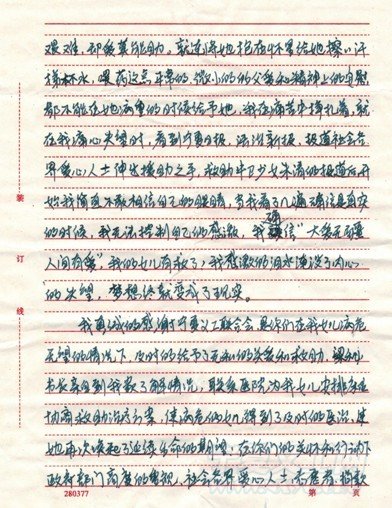 艰难,却爱莫能助,就连将她抱在怀里给她擦一汗
端杯水,喂药这点平常的,微小的的父爱和精神上的安慰
都不能在她病重的时候给予她,我在痛苦中挣扎着,就
在我痛心失望时,看到 报,法治新报,报道社会各
界爱心人士伸出援助之手,救助 少女朱清的报道后开
始我简直不敢相信自己的眼睛,当我看了几遍确信是真实
的时候,我无法控制自己的感激,我确信"大爱无疆
人间有爱"我的女儿有救了,我感激的泪水淹没了内心
的失望,梦想终就变成了现实。
我真诚的感谢 义工联合会是你们在我女儿病危
无望的情况下,及时的给予了无私的关爱和救助,梁利
书长亲自到我家了解情况,联系医院为我女儿安排专
协商救助治疗方案,使病危的女儿得到了及时的医治,使
她再次唤起了延续生命的期望,在你们的关怀和行动下
政府部门高度的重视,社会各界爱心人士,志愿者,捐款
装
订
线
280377
第 页